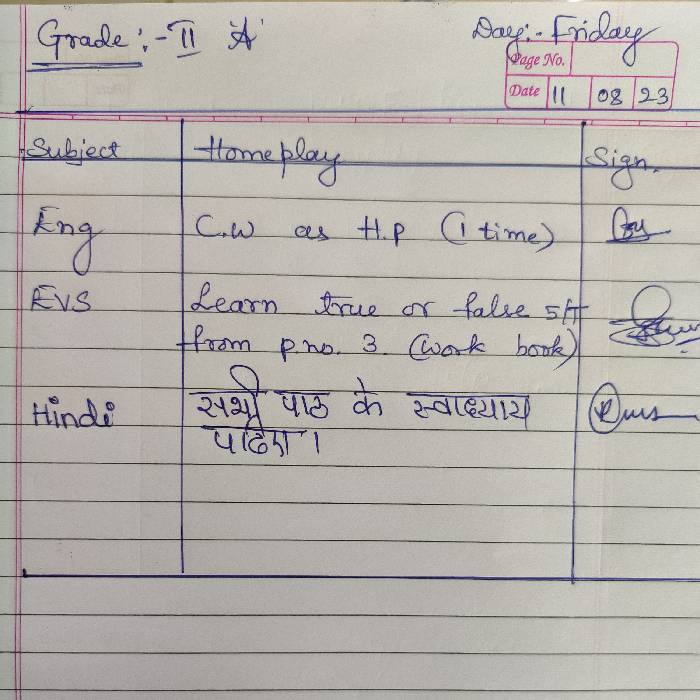 Grade :- II 'A'
Day:- Friday
Page No.
Date 11 08 23
Subject Homeplay Sign.
Eng C.W as H.P (1 time)
EVS Learn true or false s/t
from p.no. 3. (work book)
Hindi सभी पाठ के स्वाध्याय
पढिए।